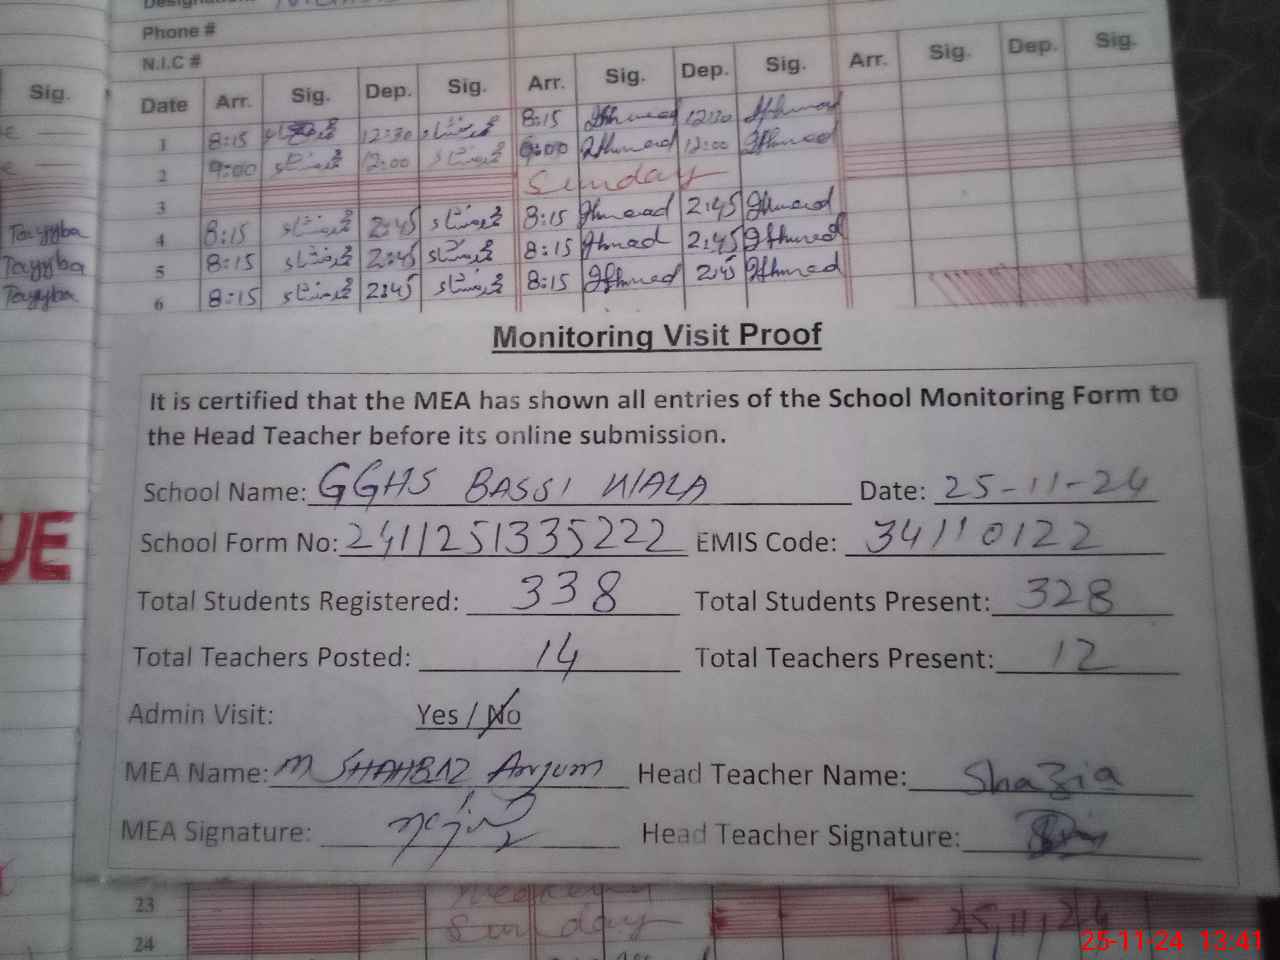 Phone #
N.I.C #
Sig.
Date Arr. Sig. Dep. Sig. Arr. Sig. Dep. Sig. Arr. Sig. Dep. Sig.
1 8:15 12:30 8:15 12:30
2 9:00 12:00 9:00 12:00
3 Sunday
Tayyba 4 8:15 2:45 8:15 2:45
Tayyba 5 8:15 2:45 8:15 2:45
Tayyba 6 8:15 2:45 8:15 2:45
Monitoring Visit Proof
It is certified that the MEA has shown all entries of the School Monitoring Form to
the Head Teacher before its online submission.
School Name: GGHS BASSI WALA Date: 25-11-24
School Form No: 2411251335222 EMIS Code: 34110122
Total Students Registered: 338 Total Students Present: 328
Total Teachers Posted: 14 Total Teachers Present: 12
Admin Visit: Yes / No
MEA Name: M SHAHBAZ Anjum Head Teacher Name: Shazia
MEA Signature: Head Teacher Signature:
UE
23
Sunday 25,11,24
24
25-11-24 13:41